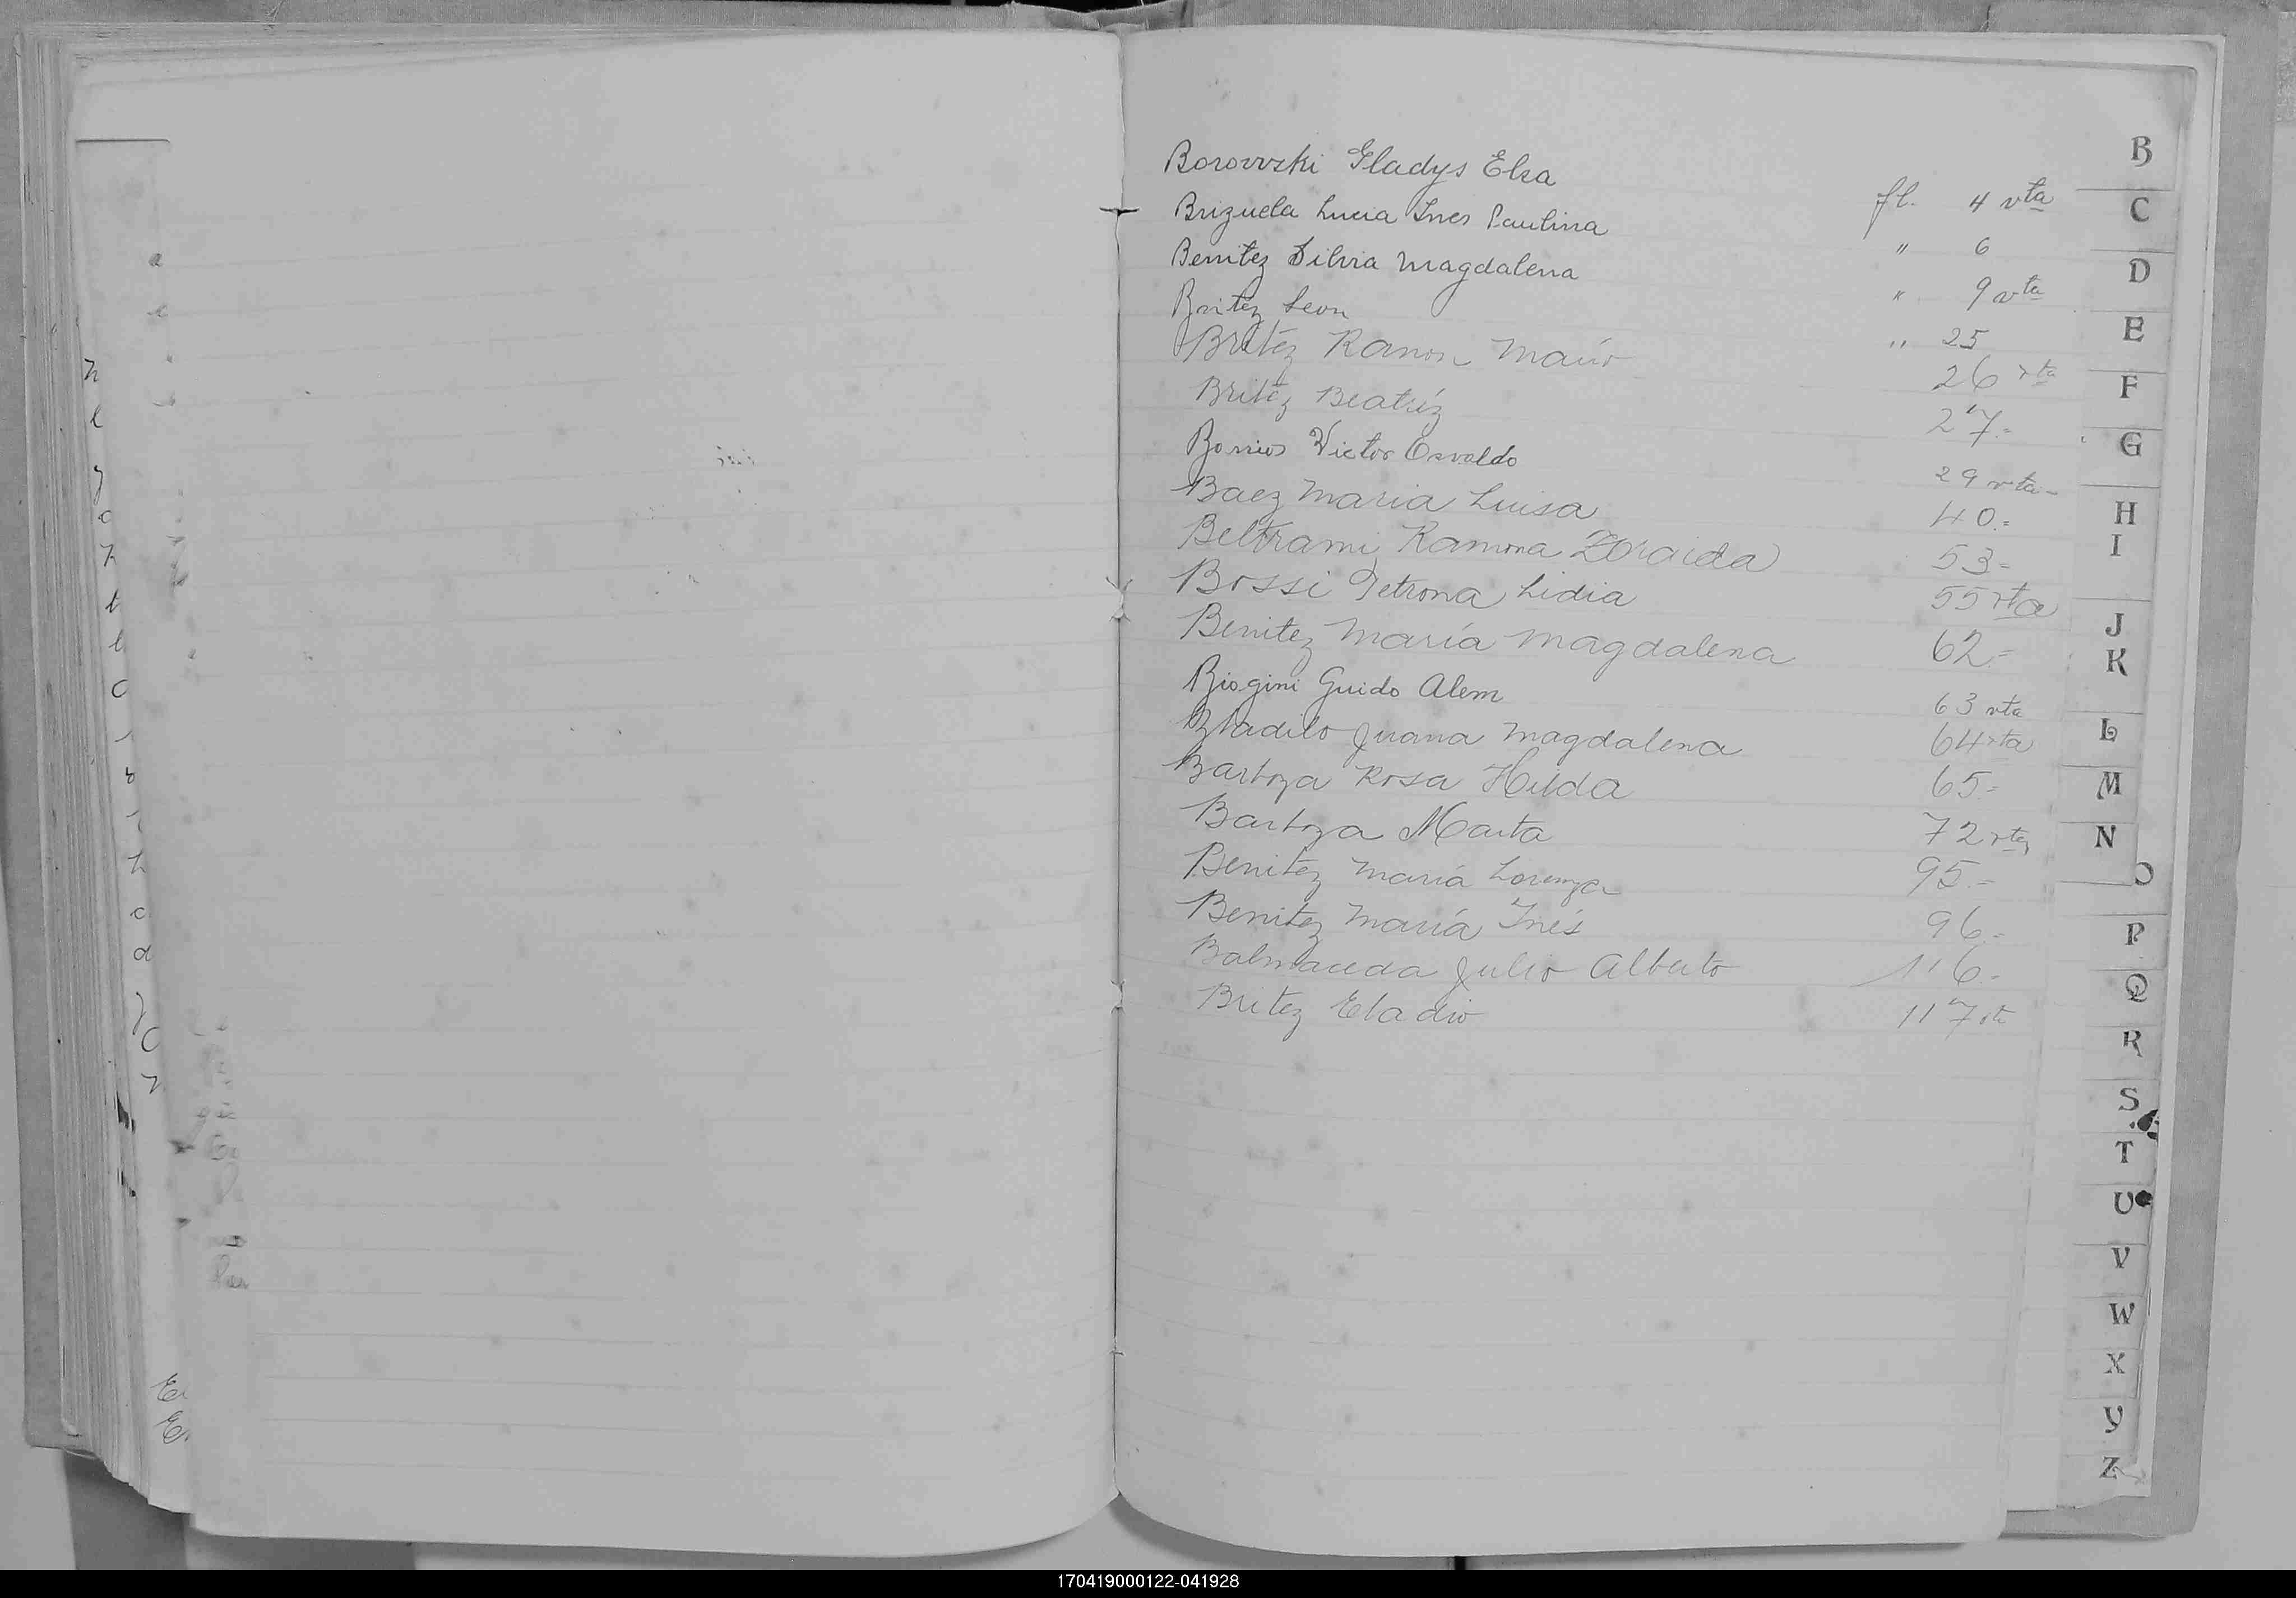 Borovvski Gladys Elsa fl. 4 vta
Brizuela Lucia Ines Paulina " 6
Benitez Silvia Magdalena " 9 vta
Britez Leon " 25
Britez Ramon Mario 26 vta
Britez Beatríz 27.=
Barrios Victor Osvaldo 29 vta-
Baez Maria Luisa 40.=
Beltrami Ramona Zoraida 53=
Bossi Petrona Lidia 55 vta
Benitez María Magdalena 62.=
Biogini Guido Alem 63 vta
Juana Magdalena 64 vta
Barboza Rosa Hilda 65.=
Barboza Marta 72 vta
Benitez María Lorenza 95.-
Benitez María Inés 96.-
Balmaceda Julio Alberto 116.-
Britez Eladio 117 vta
B
C
D
E
F
G
H
I
J
K
L
M
N
O
P
Q
R
S
T
U
V
W
X
Y
Z
170419000122-041928